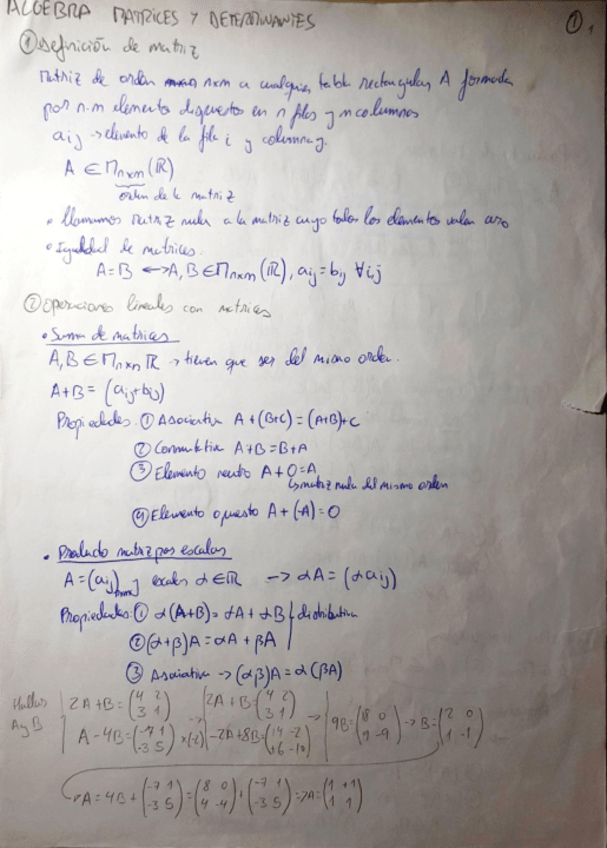 ALGEBRA MATRICES Y DETERMINANTES ① 1
① Definición de matriz
Matriz de orden nxm a cualquier tabla rectangular A formada
por n.m elementos dispuestos en n filas y m columnas
aij → elemento de la fila i y columna j.
A ∈ Mnxm (ℝ)
orden de la matriz
• Llamamos matriz nula a la matriz cuyo todos los elementos valen cero
• Igualdad de matrices.
A=B ↔ A, B ∈ Mnxm (ℝ), aij = bij ∀i,j
② Operaciones lineales con matrices
• Suma de matrices
A, B ∈ Mnxm ℝ → tienen que ser del mismo orden.
A+B = (aij+bij)
Propiedades: ① Asociativa A + (B+C) = (A+B)+C
② Conmutativa A+B = B+A
③ Elemento neutro A + O = A
↳ matriz nula del mismo orden
④ Elemento opuesto A + (-A) = O
• Producto matriz por escalar
A = (aij)nxm y escalar α ∈ ℝ → αA = (αaij)
Propiedades: ① α (A+B) = αA + αB } distributiva
② (α+β)A = αA + βA
③ Asociativa → (αβ)A = α (βA)
Hallar | 2A+B = (4 2 / 3 1) → | 2A+B = (4 2 / 3 1) → | 9B = (18 0 / 9 -9) → B = (2 0 / 1 -1)
A y B | A-4B = (-7 1 / -3 5) x(-2) | -2A+8B = (14 -2 / +6 -10)
→ A = 4B + (-7 1 / -3 5) = (8 0 / 4 -4) + (-7 1 / -3 5) => A = (1 +1 / 1 1)